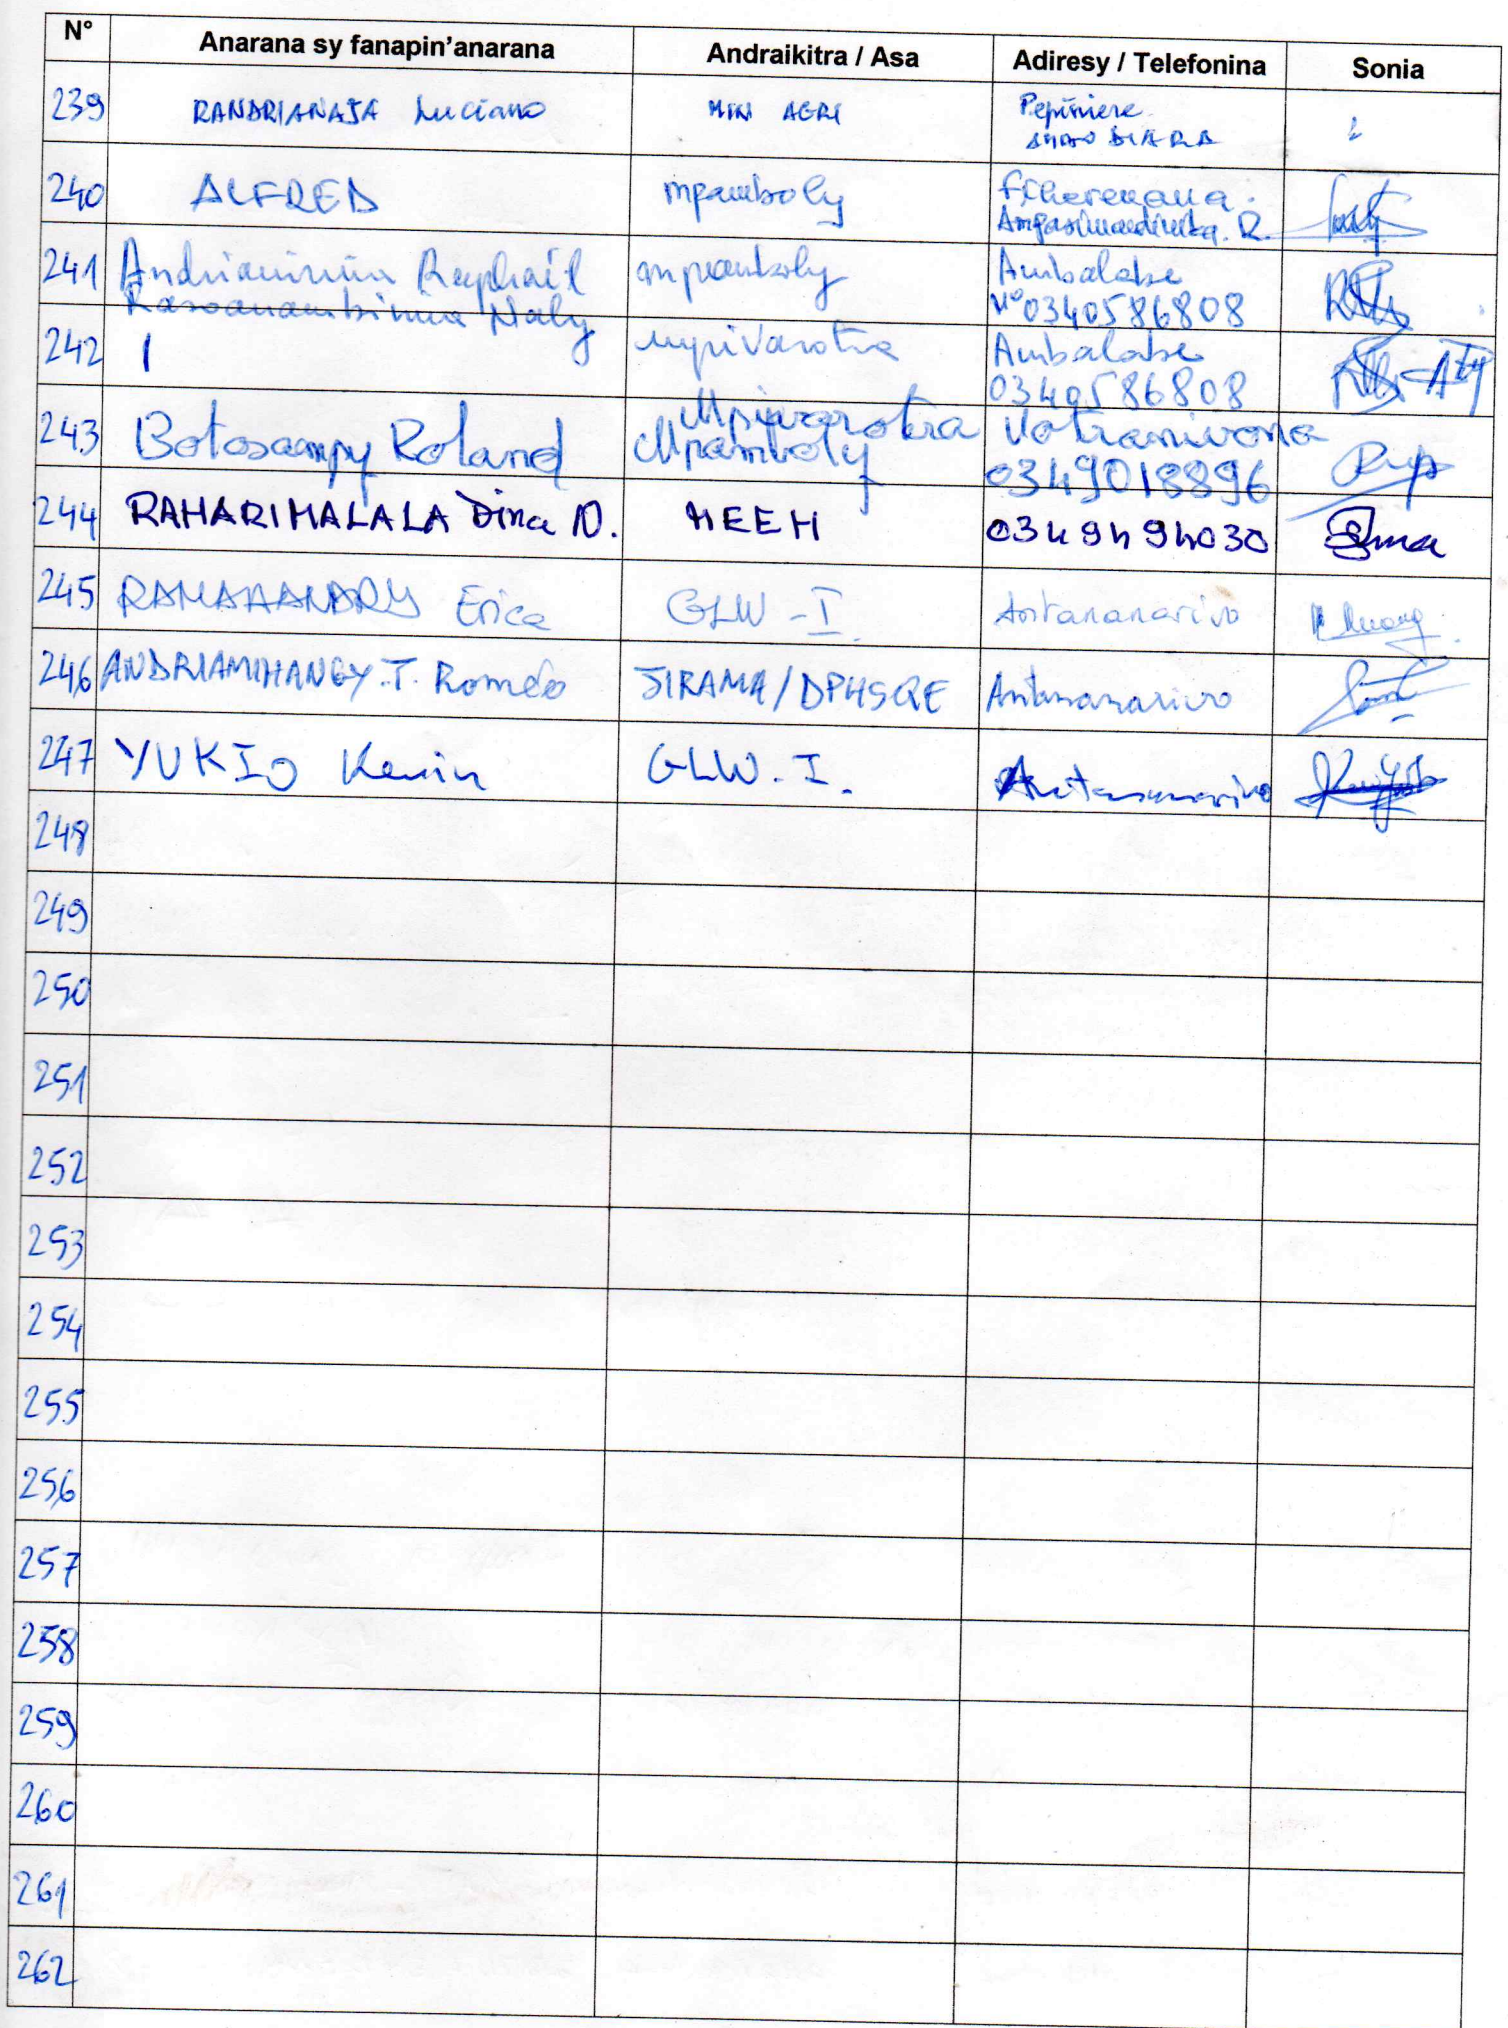 N° Anarana sy fanapin'anarana Andraikitra / Asa Adiresy / Telefonina Sonia
239 RANDRIANAJA Luciano MIN AGRI Pepiniere
240 ALFRED mpamboly Fiherenana.
Ampasimandinika. R.
241 Andrianirina Raphaël mpamboly Ambalabe
N° 0340586808
Rasoanambinina Naly
242 mpivarotra Ambalabe
0340586808
Mpivarotra
243 Botosampy Roland Mpamboly Votranivona
0349018896
244 RAHARIMALALA Dina N. MEEH 0349494030
245 Erica GLW-I. Antananarivo
246 ANDRIAMIHANGY.T. Roméo JIRAMA/DPHSQE Antananarivo
247 YUKIO Kevin GLW.I. Antananarivo
248
249
250
251
252
253
254
255
256
257
258
259
260
261
262